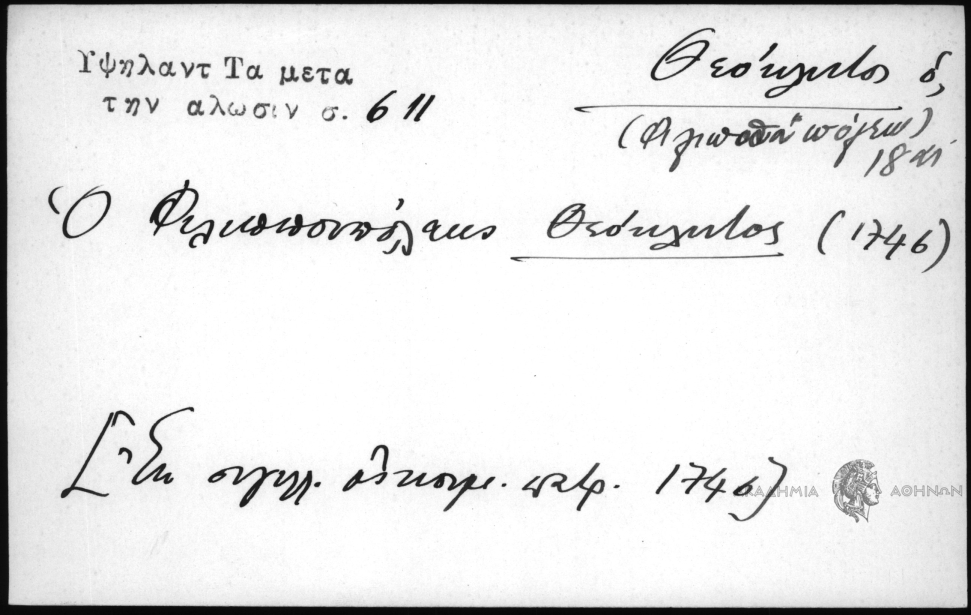 Υψηλαντ Τα μετα
την αλωσιν σ. 611
Θεόκλητος ὁ,
(Φιλιππουπόλεως)
18 αἰ.
Ὁ Φιλιππουπόλεως Θεόκλητος (1746)
[Ἐκ σιγιλλ. οἰκουμ. πατρ. 1746]
ΑΚΑΔΗΜΙΑ ΑΘΗΝΩΝ